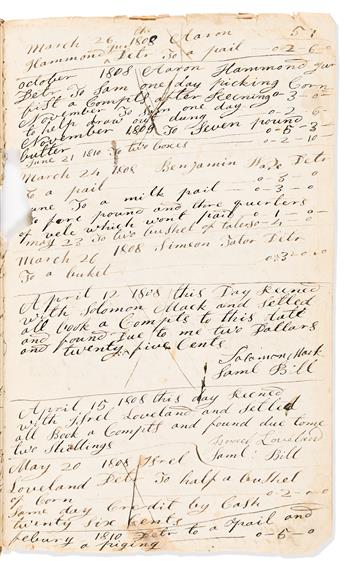 March 26 the 1808 Aaron 57
Hammond Jur Detr To a pail — 0-2-6
october 1808 Aaron Hammond Jur
Detr To Sam one day Picking Corn
first a Compts after Reckning 0-3
November To Sam one day
to help draw out dung 0-2-6
November 1809 To Seven pound
butter — 0-5-3
June 21 1810 To two boxes — 0-2-10
March 24 1808 Benjamin Detr
To a pail — 0-3-0
June To a milk pail — 0-3-0
To fore pound and thre quarters
of vele which wont paid — 0-1-0
may 23 To two bushel of 4-0
March 26 1808 Simeon Tabor Detr
To a buket — 0-3-0
April 12 1808 this Day Recned
with Solomon Mack and setled
all book a Compts to this date
and found Due to me two Dollars
and twenty five Cents
Solomon Mack
Saml Bill
April 15 1808 this day Recned
with Isrel Loveland and setled
all Book a Compts and found due to me
two Shillings
Israel Loveland
Saml. Bill
May 20 1808 Isrel
Loveland Detr To half a bushel
of Corn — 0-2-0
Same day Credit by Cash
twenty six cents
febury 1810 Detr to a Pail and
a piging — 0-5-0